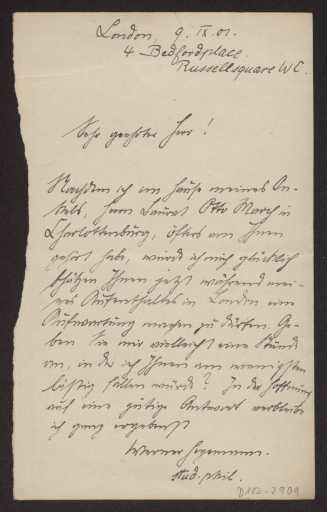 London, 9. IX. 01.
4. Bedfordplace.
Russellsquare W C.
Sehr geehrter Herr!
Nachdem ich im Hause meines On-
kels, Herrn Baurat Otto March in
Charlottenburg, öfters von Ihnen
gehört habe, würde ich mich glücklich
schätzen Ihnen jetzt während mei-
nes Aufenthaltes in London eine
Aufwartung machen zu dürfen. Ge-
ben Sie mir vielleicht eine Stunde
an, in der ich Ihnen am wenigsten
lästig fallen würde? In der Hoffnung
auf eine gütige Antwort verbleibe
ich ganz ergebenst
Werner Hegemann.
stud. phil.
D182-2909